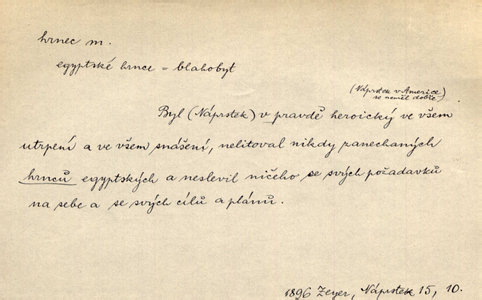 hrnec m.
egyptské hrnce = blahobyt
(Náprstek v Americe
se neměl dobře)
Byl (Náprstek) v pravdě heroický ve všem
utrpení a ve všem snášení, nelitoval nikdy zanechaných
hrnců egyptských a neslevil ničeho se svých požadavků
na sebe a se svých cílů a plánů.
1896 Zeyer, Náprstek 15, 10.